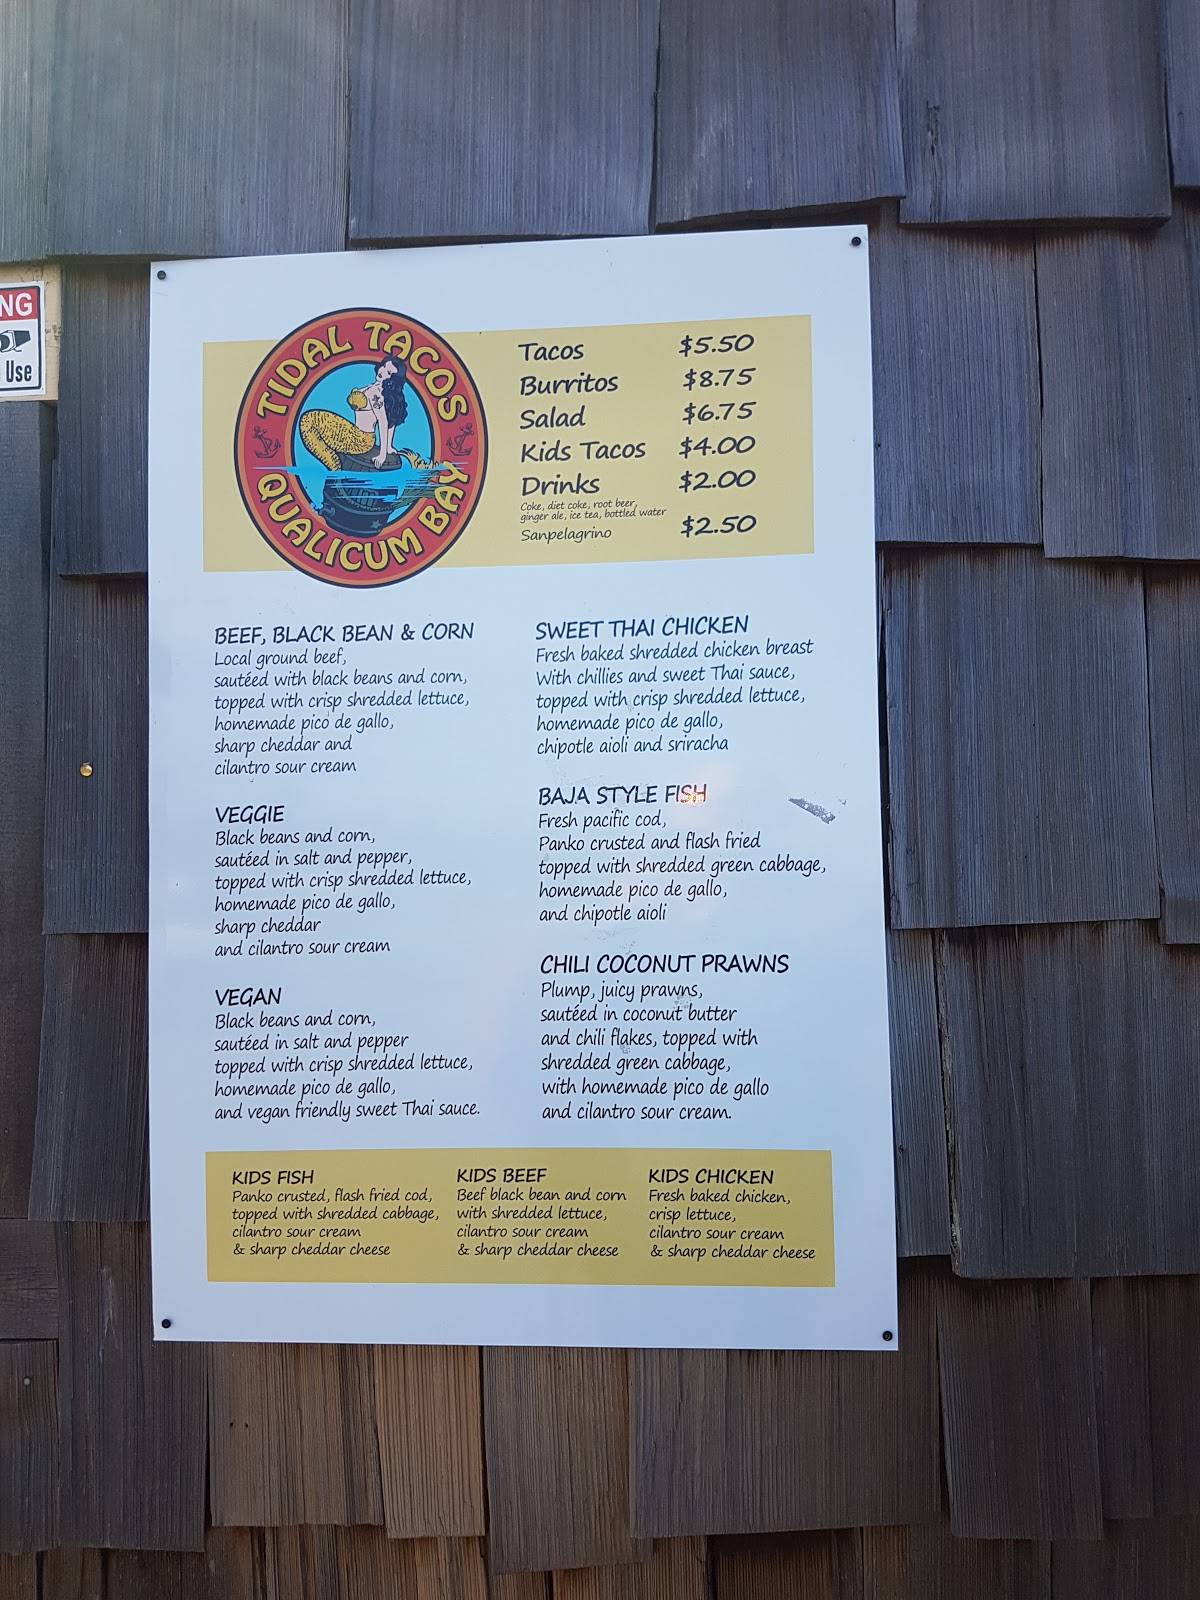 NG
Use
TIDAL TACOS
QUALICUM BAY
Tacos $5.50
Burritos $8.75
Salad $6.75
Kids Tacos $4.00
Drinks $2.00
Coke, diet coke, root beer,
ginger ale, ice tea, bottled water
Sanpelagrino $2.50
BEEF, BLACK BEAN & CORN
Local ground beef,
sautéed with black beans and corn,
topped with crisp shredded lettuce,
homemade pico de gallo,
sharp cheddar and
cilantro sour cream
VEGGIE
Black beans and corn,
sautéed in salt and pepper,
topped with crisp shredded lettuce,
homemade pico de gallo,
sharp cheddar
and cilantro sour cream
VEGAN
Black beans and corn,
sautéed in salt and pepper
topped with crisp shredded lettuce,
homemade pico de gallo,
and vegan friendly sweet Thai sauce.
SWEET THAI CHICKEN
Fresh baked shredded chicken breast
With chillies and sweet Thai sauce,
topped with crisp shredded lettuce,
homemade pico de gallo,
chipotle aioli and sriracha
BAJA STYLE FISH
Fresh pacific cod,
Panko crusted and flash fried
topped with shredded green cabbage,
homemade pico de gallo,
and chipotle aioli
CHILI COCONUT PRAWNS
Plump, juicy prawns,
sautéed in coconut butter
and chili flakes, topped with
shredded green cabbage,
with homemade pico de gallo
and cilantro sour cream.
KIDS FISH
Panko crusted, flash fried cod,
topped with shredded cabbage,
cilantro sour cream
& sharp cheddar cheese
KIDS BEEF
Beef black bean and corn
with shredded lettuce,
cilantro sour cream
& sharp cheddar cheese
KIDS CHICKEN
Fresh baked chicken,
crisp lettuce,
cilantro sour cream
& sharp cheddar cheese